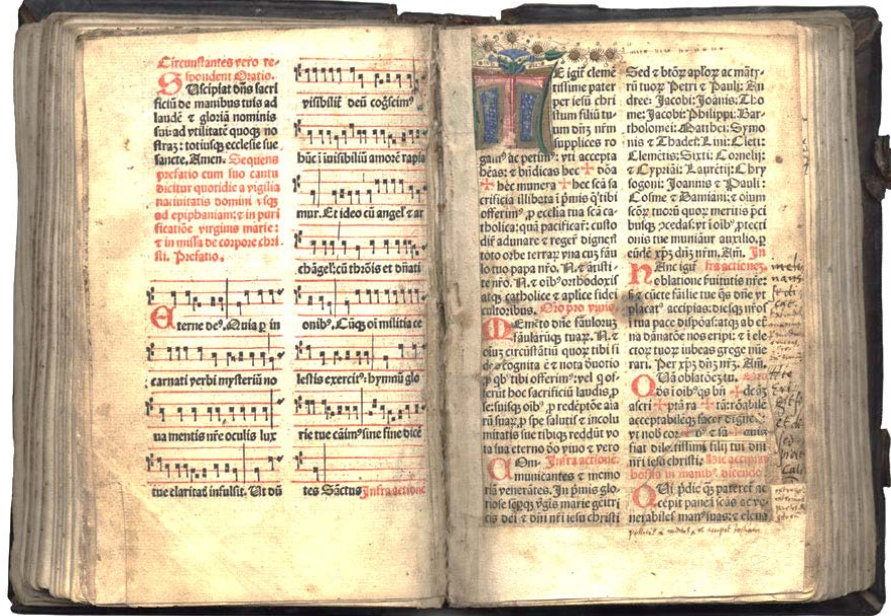 Circunstantes vero re-
spondent Oratio.
SUscipiat dñs sacri
ficiũ de manibus tuis ad
laudẽ ⁊ gloriã nominis
sui: ad vtilitatẽ quoqȝ no
straȝ: totiusqȝ ecclesie sue
sancte. Amen. Sequens
prefatio cum suo cantu
dicitur quotidie a vigilia
natiuitatis domini vsqȝ
ad epiphaniam: ⁊ in puri
ficatiõe virginis marie:
⁊ in missa de corpore chri
sti. Prefatio.
Eterne deꝰ. Quia ꝑ in
carnati verbi mysteriũ no
ua mentis nr̃e oculis lux
tue claritat̃ infulsit. Ut dũ
visibilit̃ deũ cog̃scimꝰ
hũc ĩ inuisibiliũ amorẽ rapia
mur. Et ideo cũ angel̃ ⁊ ar
chãgel̃: cũ thrõis et dñati
onibꝰ. Cũqȝ oĩ militia ce
lestis exercitꝰ: hymnũ glo
rie tue cãimꝰ sine fine dicẽ
tes Sãctus Infra actionẽ
TE igit̃ clemẽ
tissime pater
per iesũ chri
stum filiũ tu-
um dñȝ nr̃m
supplices ro
gamꝰ ac petimꝰ: vti accepta
hẽas: ⁊ bñdicas hec ✠ dõa
✠ hec munera ✠ hec scã sa
crificia illibata ĩ p̃mis q̃ tibi
offerimꝰ, ꝓ ecclia tua scã ca-
tholica: quã pacificar̃: custo
dir̃ adunare ⁊ reger̃ digner̃
toto orbe terrar̃ vna cuȝ fãu
lo tuo papa nr̃o. N. ⁊ ãtisti-
te nr̃o. N. ⁊ oĩbꝰ orthodoxis
atqȝ catholice ⁊ aplice fidei
cultoribus. Orõ pro viuis.
MEmẽto dñe fauloruȝ
faularũqȝ tuar̃. N. ⁊
oĩuȝ circũstãtiũ quor̃ tibi fi
des cognita ẽ ⁊ nota deuotio
ꝓ qbꝰ tibi offerimꝰ: vel q̃ of-
ferũt hoc sacrificiũ laudis, ꝓ
se: suisqȝ oĩbꝰ, ꝓ redẽptõe aĩa
rũ suar̃, ꝓ spe salutis ⁊ incolu
mitatis sue tibiqȝ reddũt vo
ta sua eterno dõ viuo ⁊ vero
COm- Infra actionẽ.
municantes ⁊ memo
riã venerãtes. In p̃mis glo-
riose sẽpqȝ vĩgĩs marie genit̃
cis dei ⁊ dñi nr̃i iesu christi
Sed ⁊ btõr̃ aplor̃ ac mãty-
rũ tuor̃ Petri ⁊ Pauli: An
dree: Jacobi: Joãnis: Tho
me: Jacobi: Philippi: Bar-
tholomei: Matthei: Symo
nis ⁊ Thadei: Lini: Cleti:
Clemẽtis: Sixti: Cornelij:
⁊ Cypriãi: Laurẽtij: Chry
sogoni: Joannis ⁊ Pauli:
Cosme ⁊ Damiani: ⁊ oĩum
scõr̃ tuorũ quor̃ meritis p̃ci
busqȝ ꝓcedas: vt ĩ oĩbꝰ, ꝓtecti
onis tue muniãur auxilio. ꝑ
eũdẽ xp̃ȝ dñȝ nr̃m. Am̃. In
HAnc igit̃ fra actionẽ.
oblationẽ ẽuitutis nr̃e:
ß ⁊ cũcte fãilie tue q̃s dñe vt
placat̃ accipias: diesqȝ nr̃os
ĩ tua pace dispõas: atqȝ ab et̃
na dãnatõe nos eripi: ⁊ ĩ ele
ctor̃ tuor̃ iubeas grege nũe
rari. Per xp̃ȝ dñȝ nr̃ȝ. Am̃.
QUã oblatõeȝ tu.
ds ĩ oĩbꝰ q̃s bñ ✠ dcãȝ
ascri ✠ ptã ra ✠ tã: rõabile
acceptabileqȝ facer̃ digner̃
vt nob̃ cor ✠ pꝰ ⁊ sã ✠ guis
fiat dilectissimi filij tui dñi
nr̃i iesu christi: Hic accipiat
hostiã in manibꝰ dicendo
QUi p̃die qȝ pateret̃ ac
cepit panẽ ĩ scãs ac ve-
nerabiles manꝰ suas: ⁊ eleua